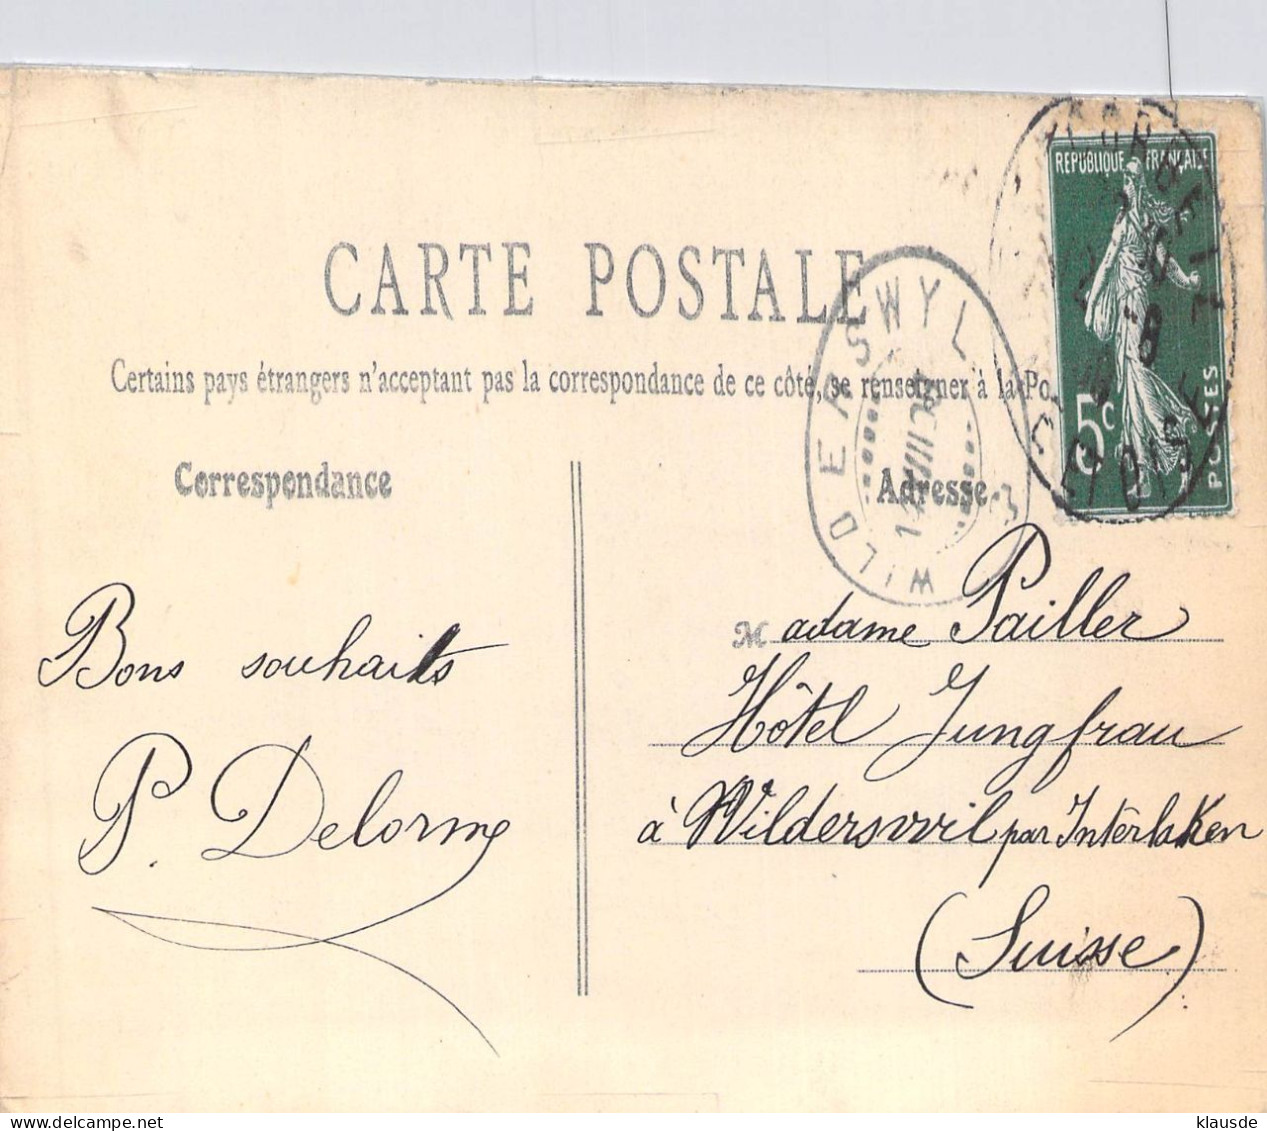 RÉPUBLIQUE FRANÇAISE
5c
POSTES
CORBEIL
Sne ET OISE
CARTE POSTALE
WILDERSWYL
Certains pays étrangers n'acceptant pas la correspondance de ce côté, se renseigner à la Po
Correspondance
Adresse
Bons souhaits
P. Delorme
Madame Pailler
Hôtel Jungfrau
à Wilderswil par Interlaken
(Suisse)
klausde